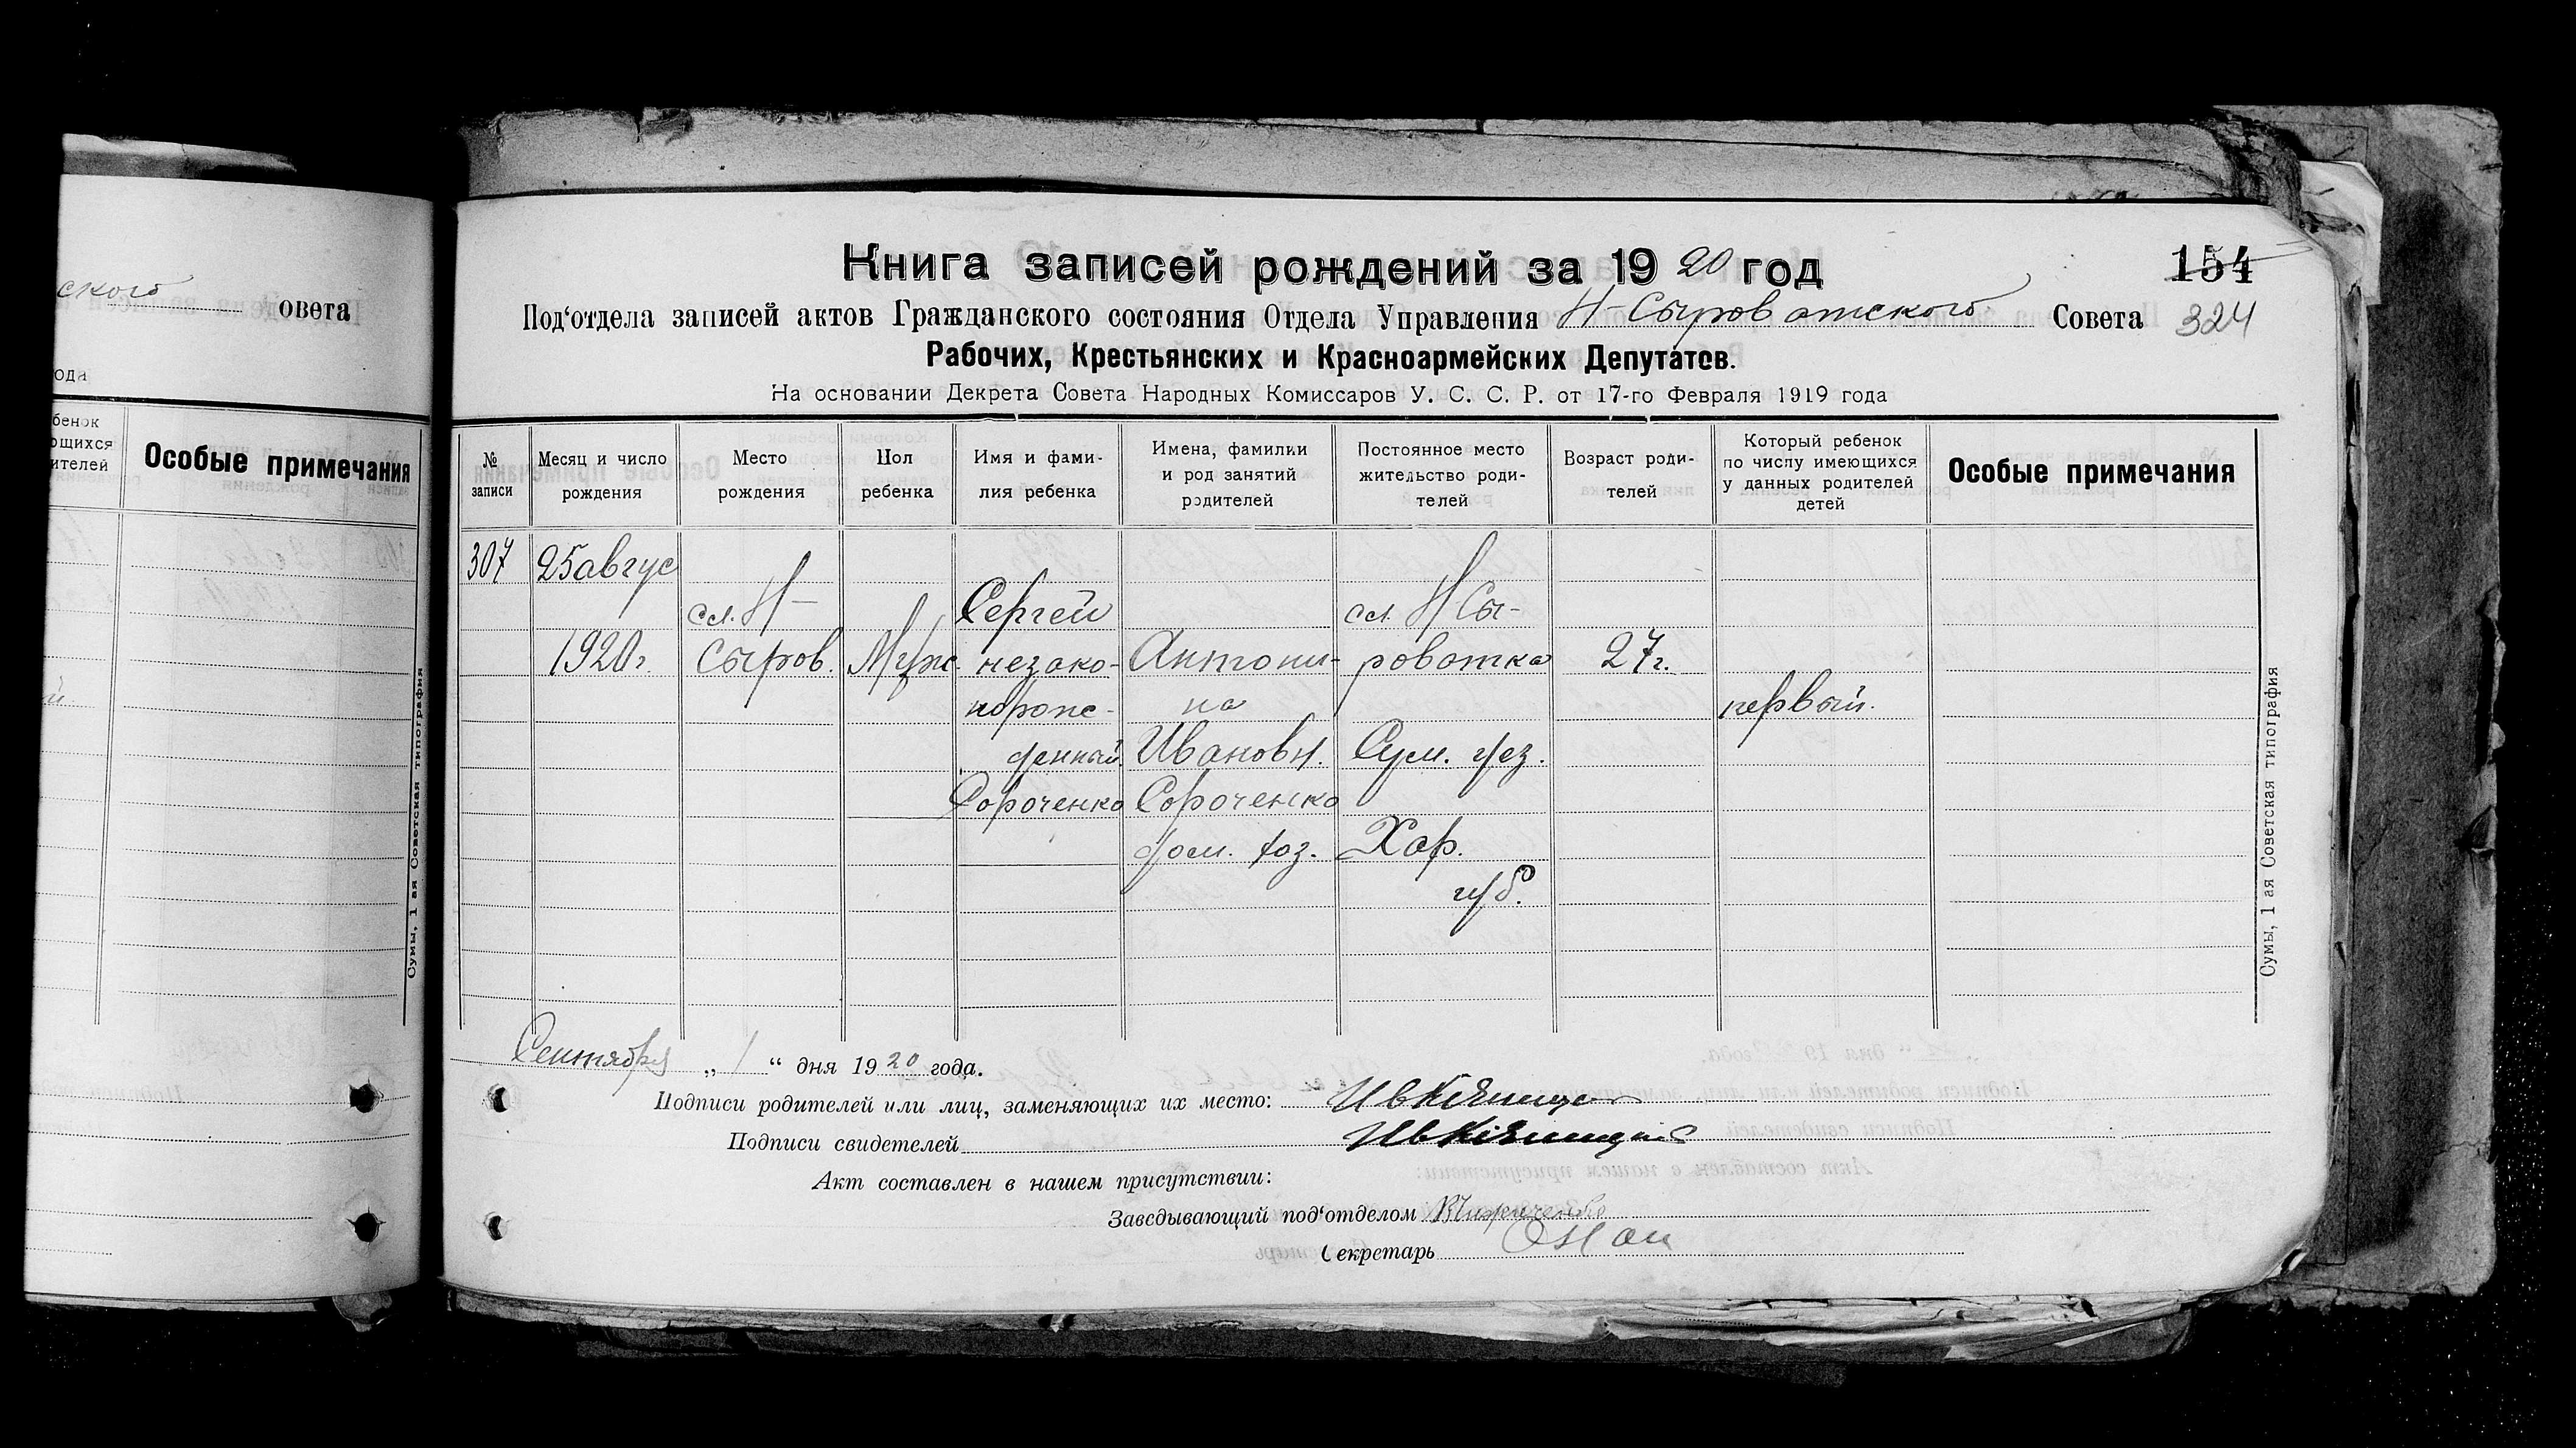 ского овета
ода
бенок
ющихся
ителей
Особые примечания
й
Сумы, 1 ая Советская типография
Книга записей рождений за 1920 год
154
Под‘отдела записей актов Гражданского состояния Отдела Управления Н-Сыроватского Совета
324
Рабочих, Крестьянских и Красноармейских Депутатов.
На основании Декрета Совета Народных Комиссаров У. С. С. Р. от 17-го Февраля 1919 года
№ записи
Месяц и число рождения
Место рождения
Пол ребенка
Имя и фами-
лия ребенка
Имена, фамилии
и род занятий
родителей
Постоянное место
жительство роди-
телей
Возраст роди-
телей
Который ребенок
по числу имеющихся
у данных родителей
детей
Особые примечания
307
25 авгус
1920 г.
сл. Н-
Сыров.
Муж.
Сергей
незако-
норож-
денный.
Сороченко
Антони-
на
Ивановн.
Сороченко
дом. хоз.
сл. Н Сы-
роватка
Сум. уез.
Хар.
губ.
27 г.
первый.
Сумы, 1 ая Советская типография
Сентября „ 1 “ дня 1920 года.
Подписи родителей или лиц, заменяющих их место:
Подписи свидетелей
Акт составлен в нашем присутствии:
Заведывающий под‘отделом
Секретарь